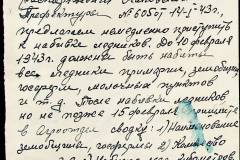 Префектуры № 6050 от 14-I-43г.
предлагаем немедленно приступить
к набивке ледников. До 10 февраля
1943г. должны быть набиты
все ледники примарии, земобщин,
госферм, молочных пунктов
и т.д. После набивки ледников
но не позже 15 февраля пришлите
в Агроотдел сводку: 1) Наименование
земобщины, госфермы 2) Кол-во